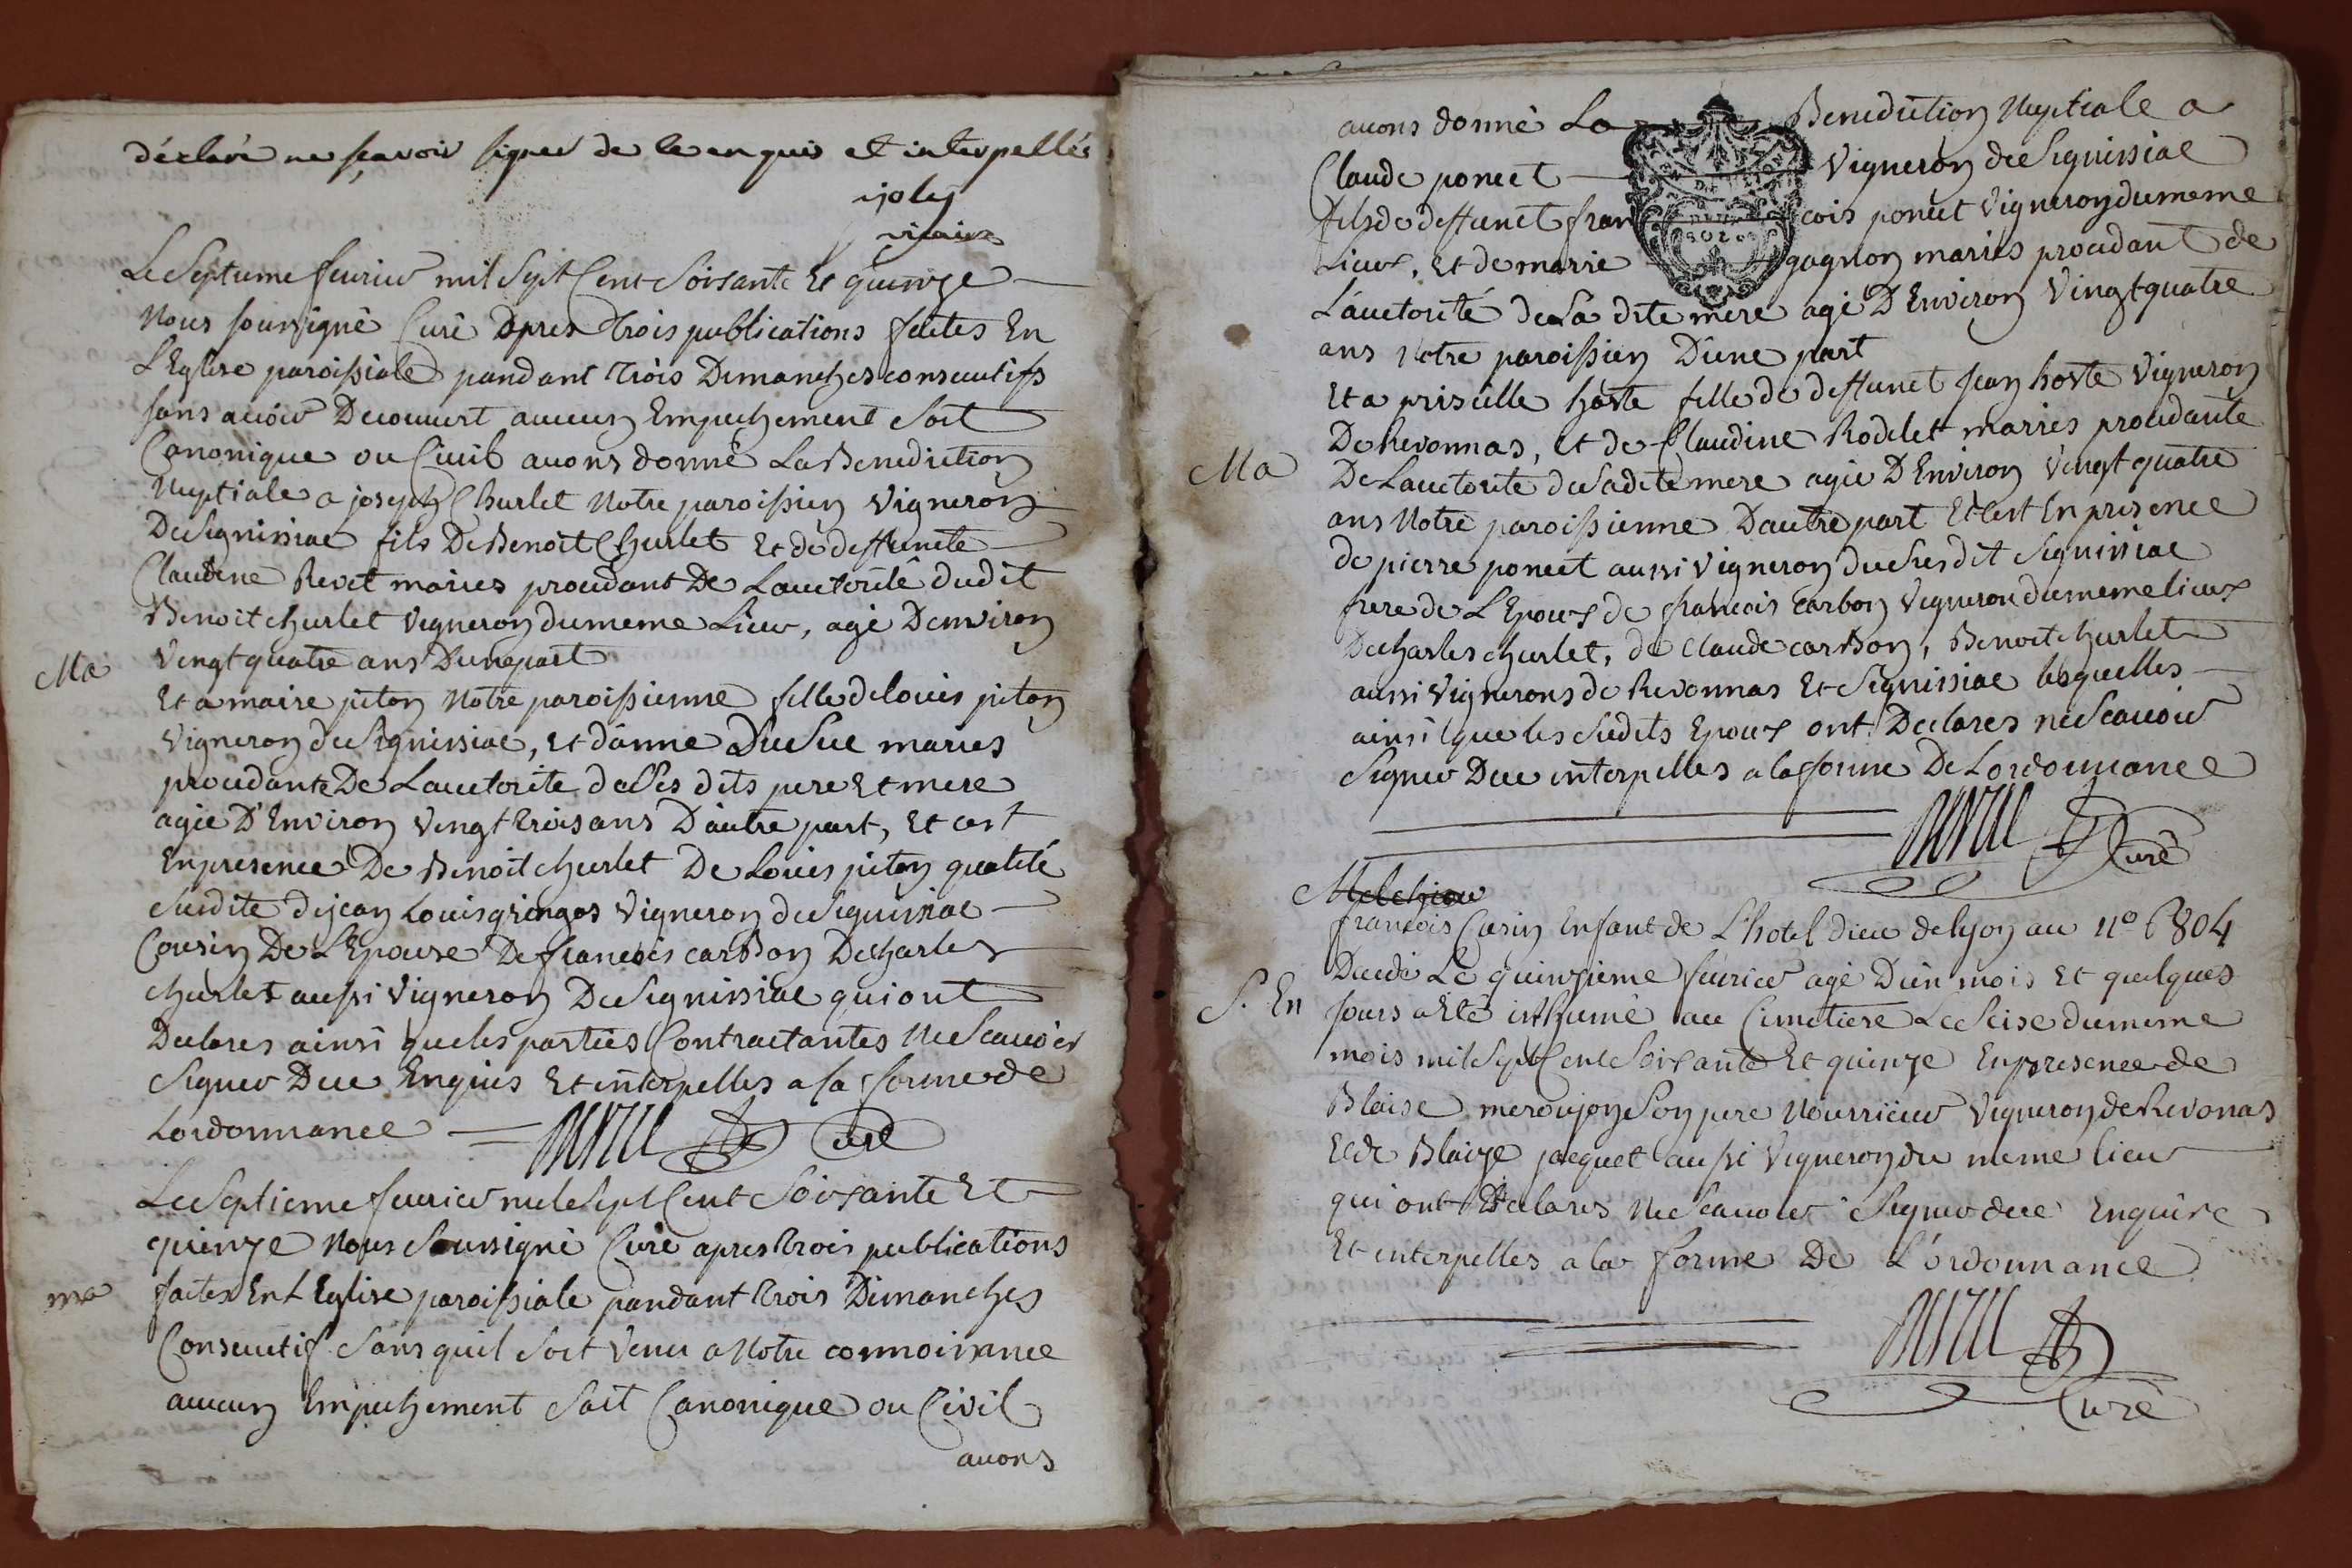 déclaré ne sçavoir signer de ce enquis et interpellés
joly
vicaire
Le Septieme feurier mil Sept Cent Soisante Et quinze
Nous soussigné Curé Apres Trois publications faites En
L'Eglise paroissiale pandant Trois Dimanches consecutifs
sans auoir Decouuert aucun Empechement Soit
Canonique ou Ciuil auons donné La Benediction
Nuptiale a joseph Churlet Notre paroissien Vigneron
De Signissiac fils De Benoit Churlet Et de deffuncte
Claudine Revet maries procedant De Lauctorité dudit
Benoit churlet Vigneron du meme Lieu, agé Denviron
Vingt quatre ans Dune part
Ma
Et a maire piton Notre paroissienne fille de louis piton
Vigneron de Signissiac, et d'anne DuSuc maries
procedante De Lauctorite de Ses dits pere Et mere
agée D'Environ Vingt trois ans D'autre part, Et cest
En presence De Benoit churlet De Louis piton qualité
Susdite de jean Louis gringos Vigneron de Signissiac
Cousin De L'Epouse De francois carbon De charles
churlet aussi Vigneron De Signissiac qui ont
Declares ainsi que les parties Contractantes Ne Scauoir
Signer De ce Enquis Et interpelles a la forme de
Lordonnance Curé
Le Septieme feurier mil Sept Cent Soisante Et
quinze Nous Soussigné Curé apres trois publications
ma
faites En L Eglise paroissiale pandant trois Dimanches
Consecutif Sans quil Soit Venu a Notre connoissance
aucun Empechement Soit Canonique ou Civil
auons
auons donné La Benediction Nuptiale a
Claude poncet Vigneron de Signissiac
fils de deffunct francois poncet Vigneron du meme
Lieux, Et de marie gagnon maries procedant de
L'auctorité de La dite mere agé D'Environ Vingt quatre
ans Notre paroissien D'une part
Et a priscille hoste fille de deffunct jean hoste Vigneron
De Revonnas, Et de Claudine Rodelet maries procedante
Ma
De Lauctorite de Sa dite mere agée D'Environ Vingt quatre
ans Notre paroissienne Dautre part Et cest En presence
de pierre poncet aussi Vigneron du Susdit Signissiac
frere de L'Epoux de francois carbon Vigneron du meme lieux
De charles churlet, de Claude carbon, Benoit churlet
aussi Vignerons de Revonnas Et Signissiac lesquelles
ainsi que les Susdits Epoux ont Declares ne Scauoir
Signer De ce interpelles a la forme De Lordonnance
Curé
Melchior
francois Casin Enfant de L'hotel dieu de lyon au n° 6804
Decedé Le quinzieme feurier agé D'un mois Et quelques
S. En
jours a Eté inhumé au Cimetiere Le Seise du meme
mois mil Sept Cent Soisante Et quinze En presence de
Blaise meroujon Son pere Nourricier Vigneron de Revonas
Et de Blaize jacquet aussi Vigneron du meme lieu
qui ont Declares Ne Scauoir Signer de ce Enquise
Et interpelles a la forme De L'ordonnance
Curé